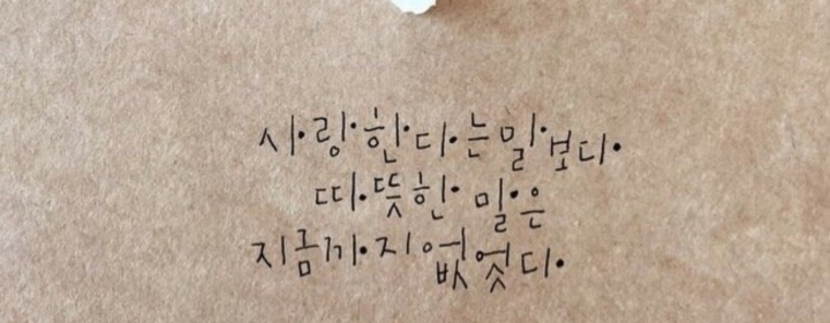 사랑한다는말보다
따뜻한 말은
지금까지없었다